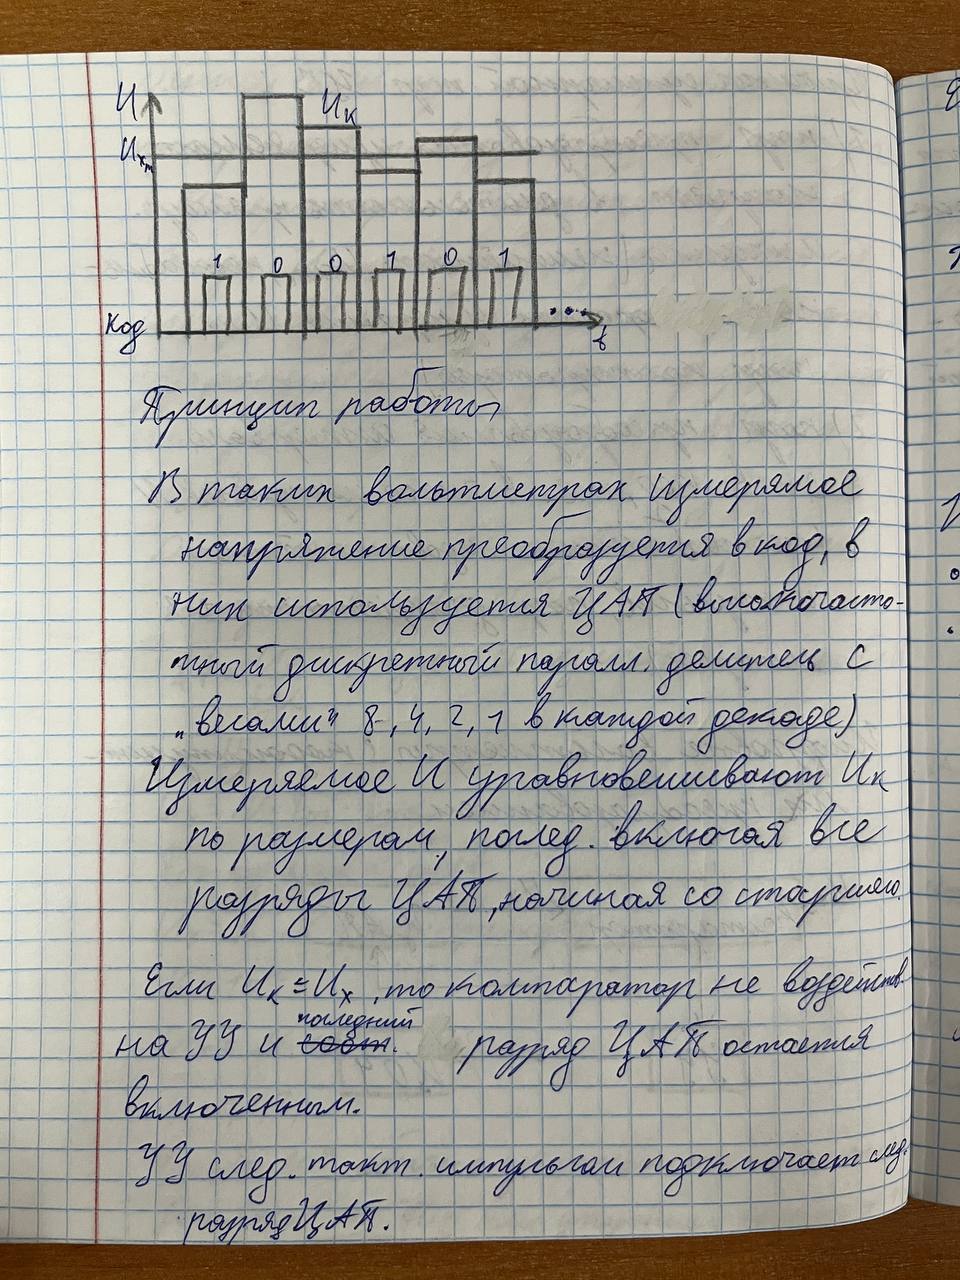 U
Uк
Uх
1 0 0 1 0 1
Код
t
Принцип работы
В таких вольтметрах измерямое
напряжение преобразуется в код, в
них используется ЦАП (высокочасто-
тный дискретный паралл. делитель с
„весами" 8, 4, 2, 1 в каждой декаде)
Измеряемое U уравновешивают Uк
по размерам, послед. включая все
разряды ЦАП, начиная со старшего.
Если Uк ≤ Uх, то компаратор не воздейств.
последний
на УУ и разряд ЦАП остается
включенным.
УУ след. такт. импульсом подключает след.
разряд ЦАП.